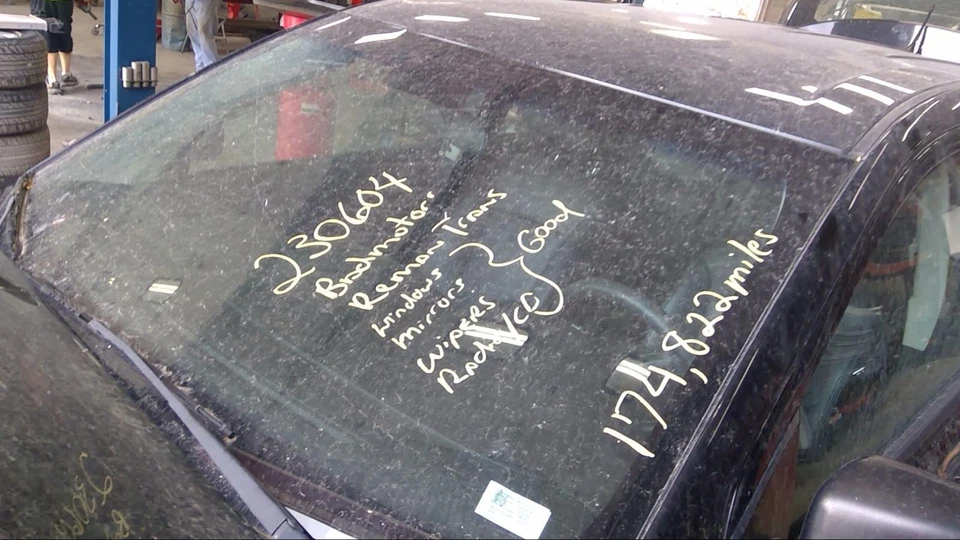 230604
Bad motor
Reman Trans
Windows
Mirrors
Wipers
Radio/CD
Good
174,822 miles